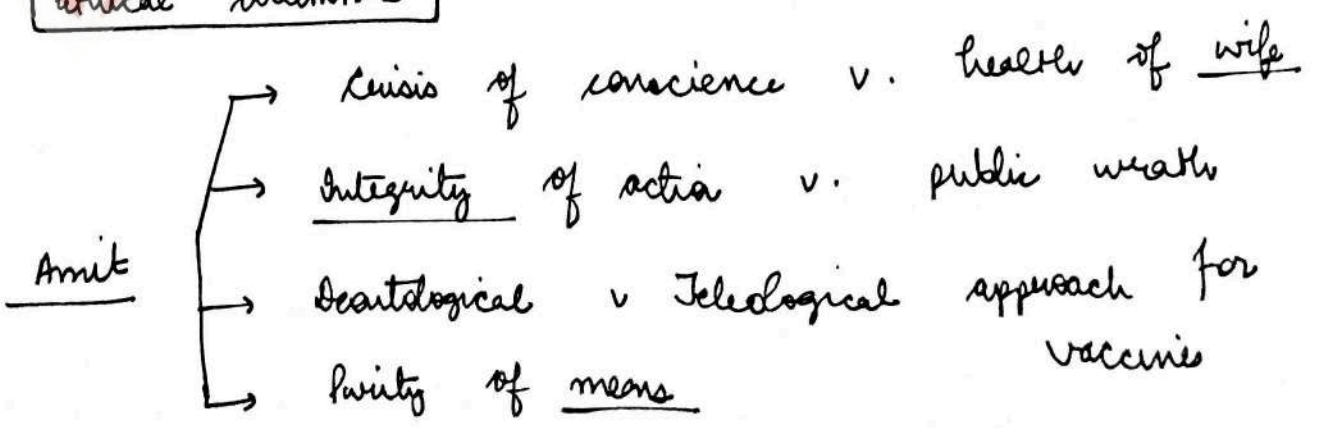 Crisis of conscience v. health of wife
Integrity of action v. public wrath
Amit
Deontological v Teleological approach for
vaccines
Purity of means